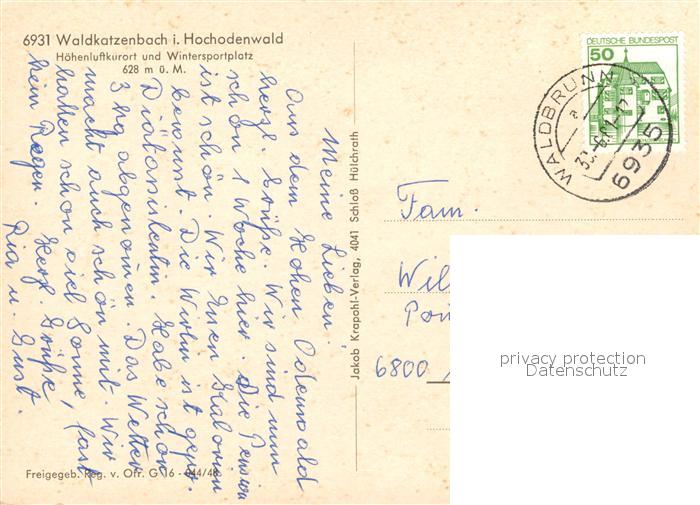 6931 Waldkatzenbach i. Hochodenwald
Höhenluftkurort und Wintersportplatz
628 m ü. M.
Meine Lieben!
Aus dem Hohen Odenwald
herzl. Grüße. Wir sind nun
schon 1 Woche hier. Die Pension
ist schön. Wir Essen Kalorien
bewusst. Die Wirtin ist gepr.
Diätassistentin. Habe schon
3 kg abgenomen. Das Wetter
macht auch schön mit. Wir
hatten schon viel Sonne, fast
kein Regen. Herzl. Grüße
Ria u. Gust.
Freigegeb. Reg. v. Ofr. G 16 - 044/48
Jakob Krapohl-Verlag, 4041 Schloß Hülchrath
50
DEUTSCHE BUNDESPOST
WALDBRUNN
a
6935
Fam.
Wil
6800
privacy protection
Datenschutz